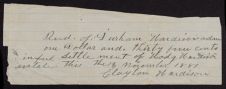 Recd. of Durham Hardison admr
one Dollar and thirty five cents
in full settlement of Hardy Hardison
estate this the 18 November 1881
Clayton Hardison